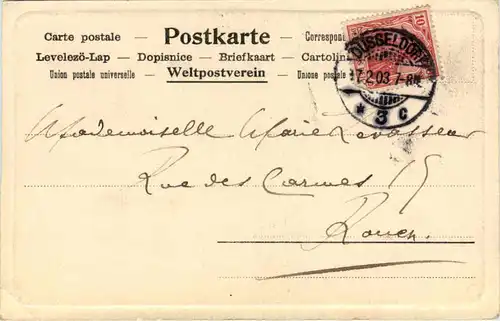 Carte postale — Postkarte — Correspon
Levelező-Lap — Dopisnice — Briefkaart — Cartolin
Union postale universelle — Weltpostverein — Unione postale
10
DÜSSELDORF
17.2.03 7-8N.
* 3 c
Mademoiselle Marie Levasseur
Rue des Carmes 15
Rouen.